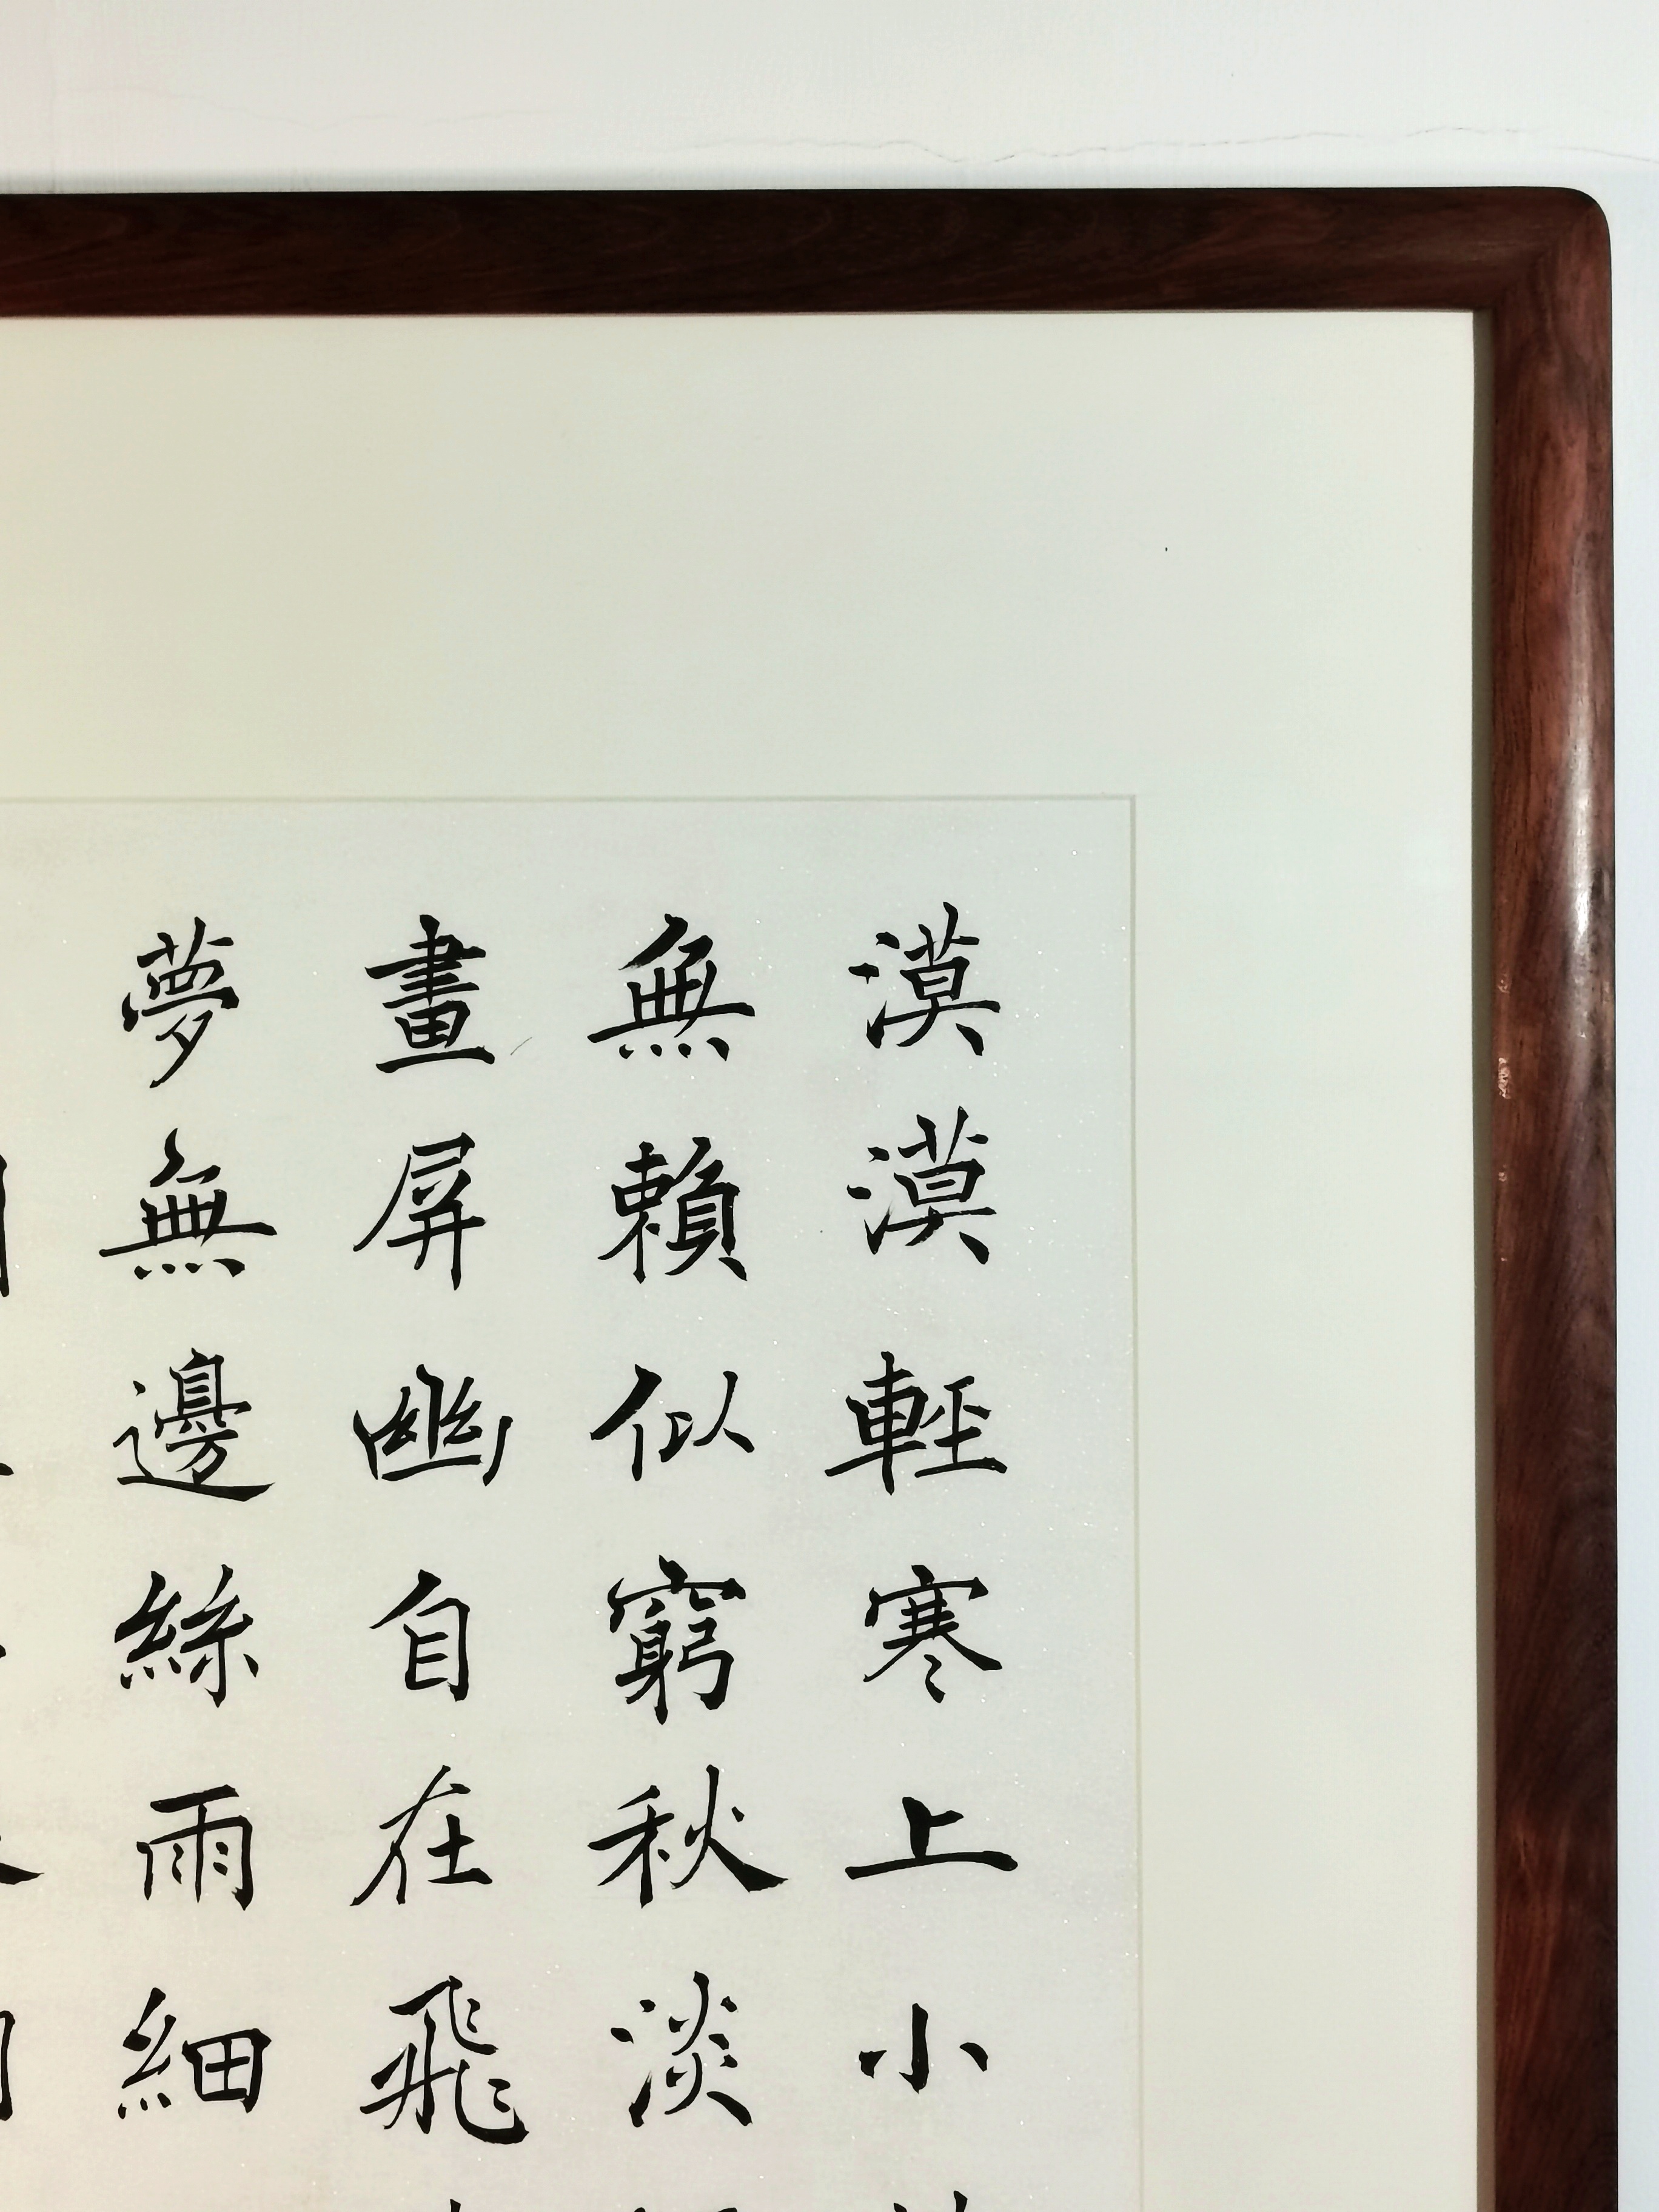 漠漠輕寒上小
無賴似窮秋淡
畫屏幽自在飛
夢無邊絲雨細